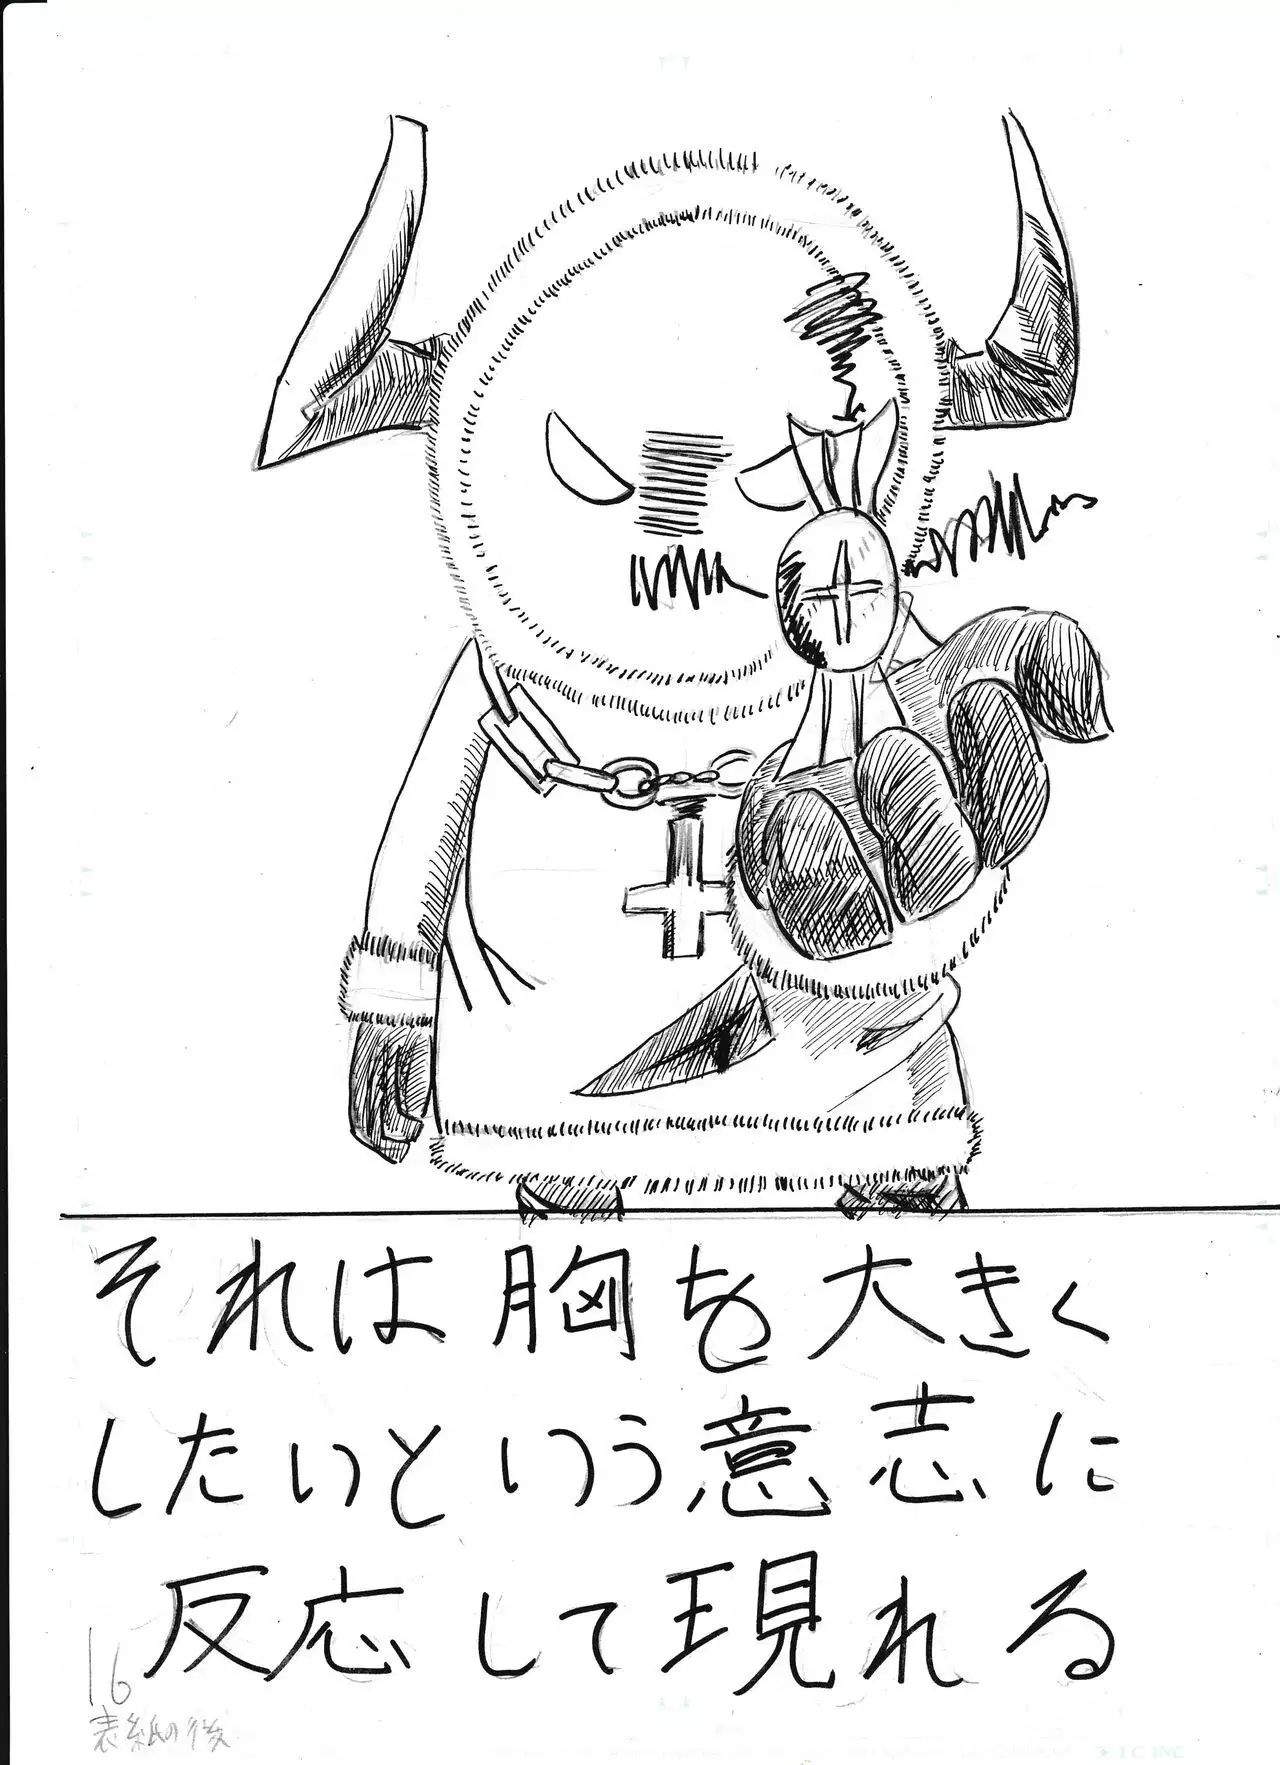 それは胸を大きく
したいという意志に
反応して現れる
16
表紙の後